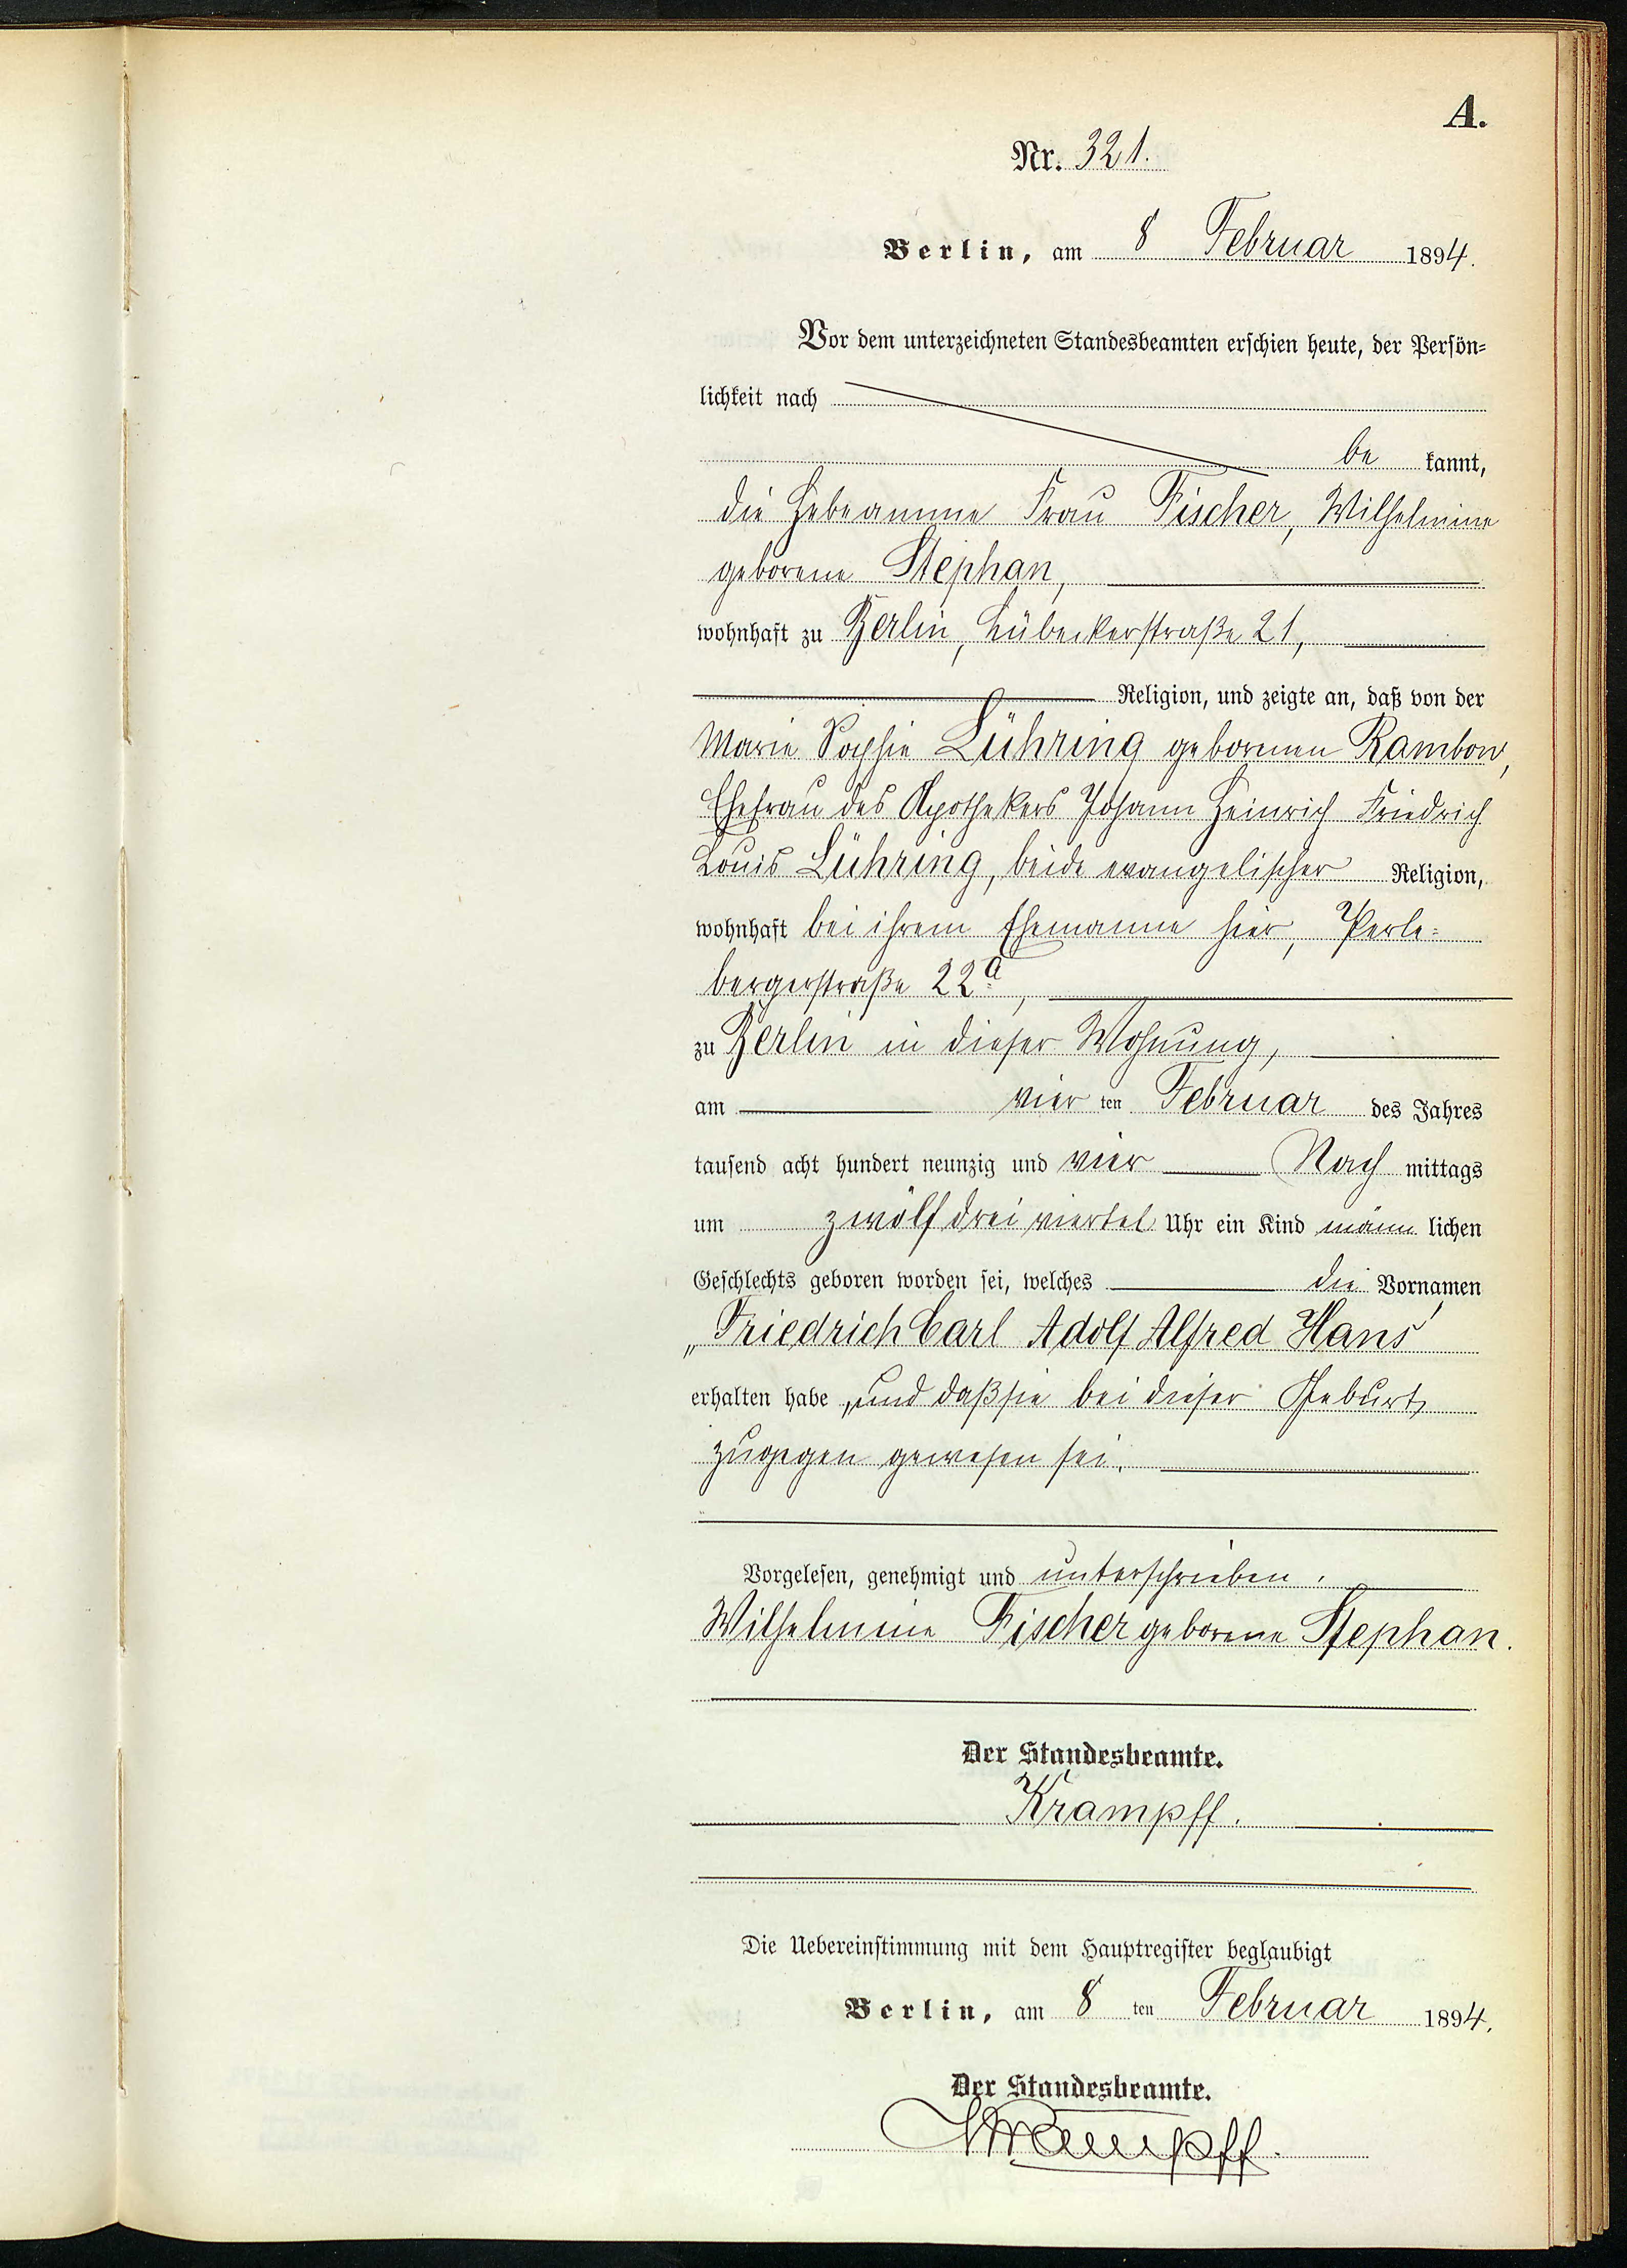 A.
Nr. 321.
Berlin, am 8 Februar 1894.
Vor dem unterzeichneten Standesbeamten erschien heute, der Persön-
lichkeit nach
be kannt,
die Hebeamme Frau Fischer, Wilhelmine
geborene Stephan,
wohnhaft zu Berlin, Lübeckerstraße 21,
Religion, und zeigte an, daß von der
Marie Sophie Lühring geborenen Rambow,
Ehefrau des Apothekers Johann Heinrich Friedrich
Louis Lühring, beide evangelischer Religion,
wohnhaft bei ihrem Ehemanne hier, Perle-
bergerstraße 22a,
zu Berlin in dieser Wohnung,
am vier ten Februar des Jahres
tausend acht hundert neunzig und vier Nach mittags
um zwölf drei viertel Uhr ein Kind männ lichen
Geschlechts geboren worden sei, welches die Vornamen
„Friedrich Carl Adolf Alfred Hans"
erhalten habe, und daß sie bei dieser Geburt
zugegen gewesen sei.
Vorgelesen, genehmigt und unterschrieben.
Wilhelmine Fischer geborene Stephan.
Der Standesbeamte.
Krampff.
Die Uebereinstimmung mit dem Hauptregister beglaubigt
Berlin, am 8 ten Februar 1894.
Der Standesbeamte.
Krampff.